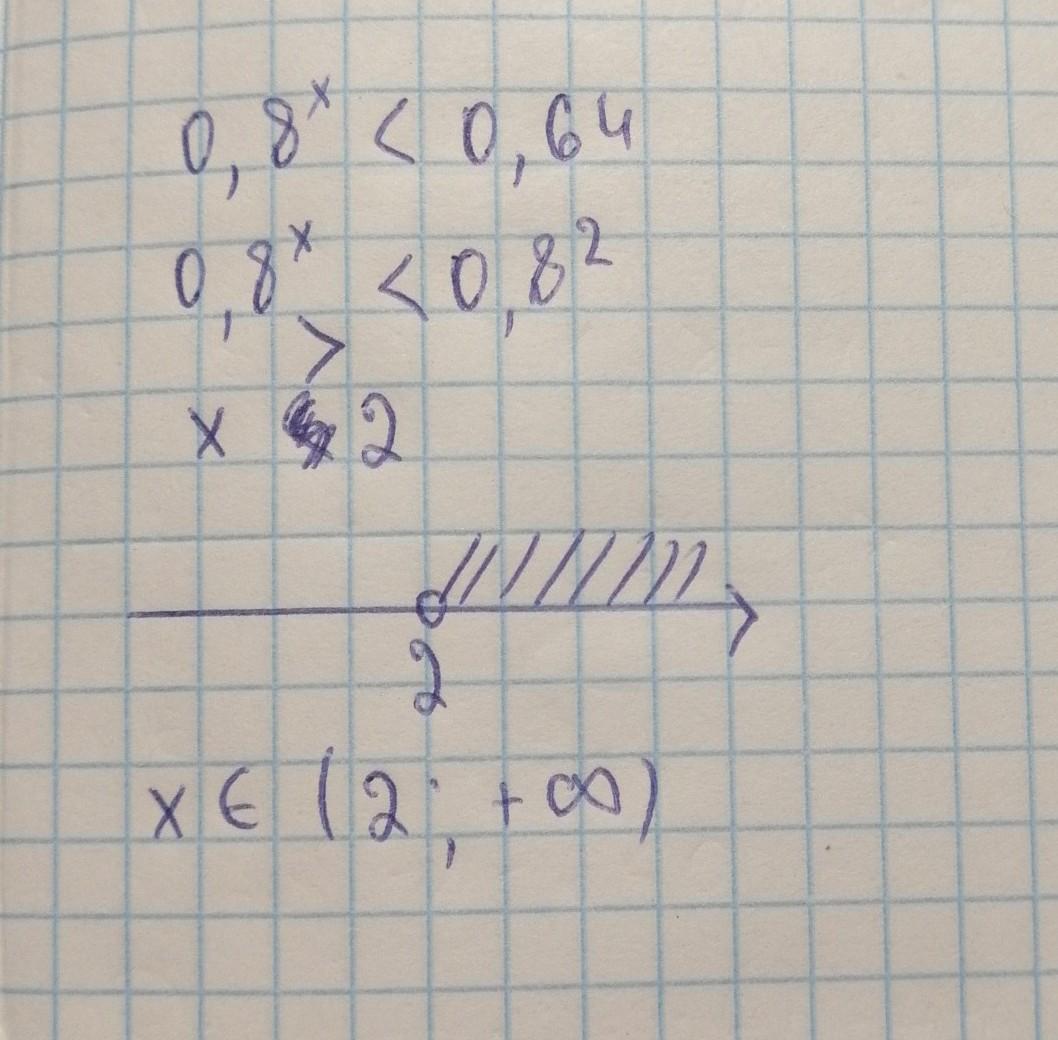 0,8ˣ < 0,64
0,8ˣ < 0,8²
x > 2
2
x ∈ (2; +∞)